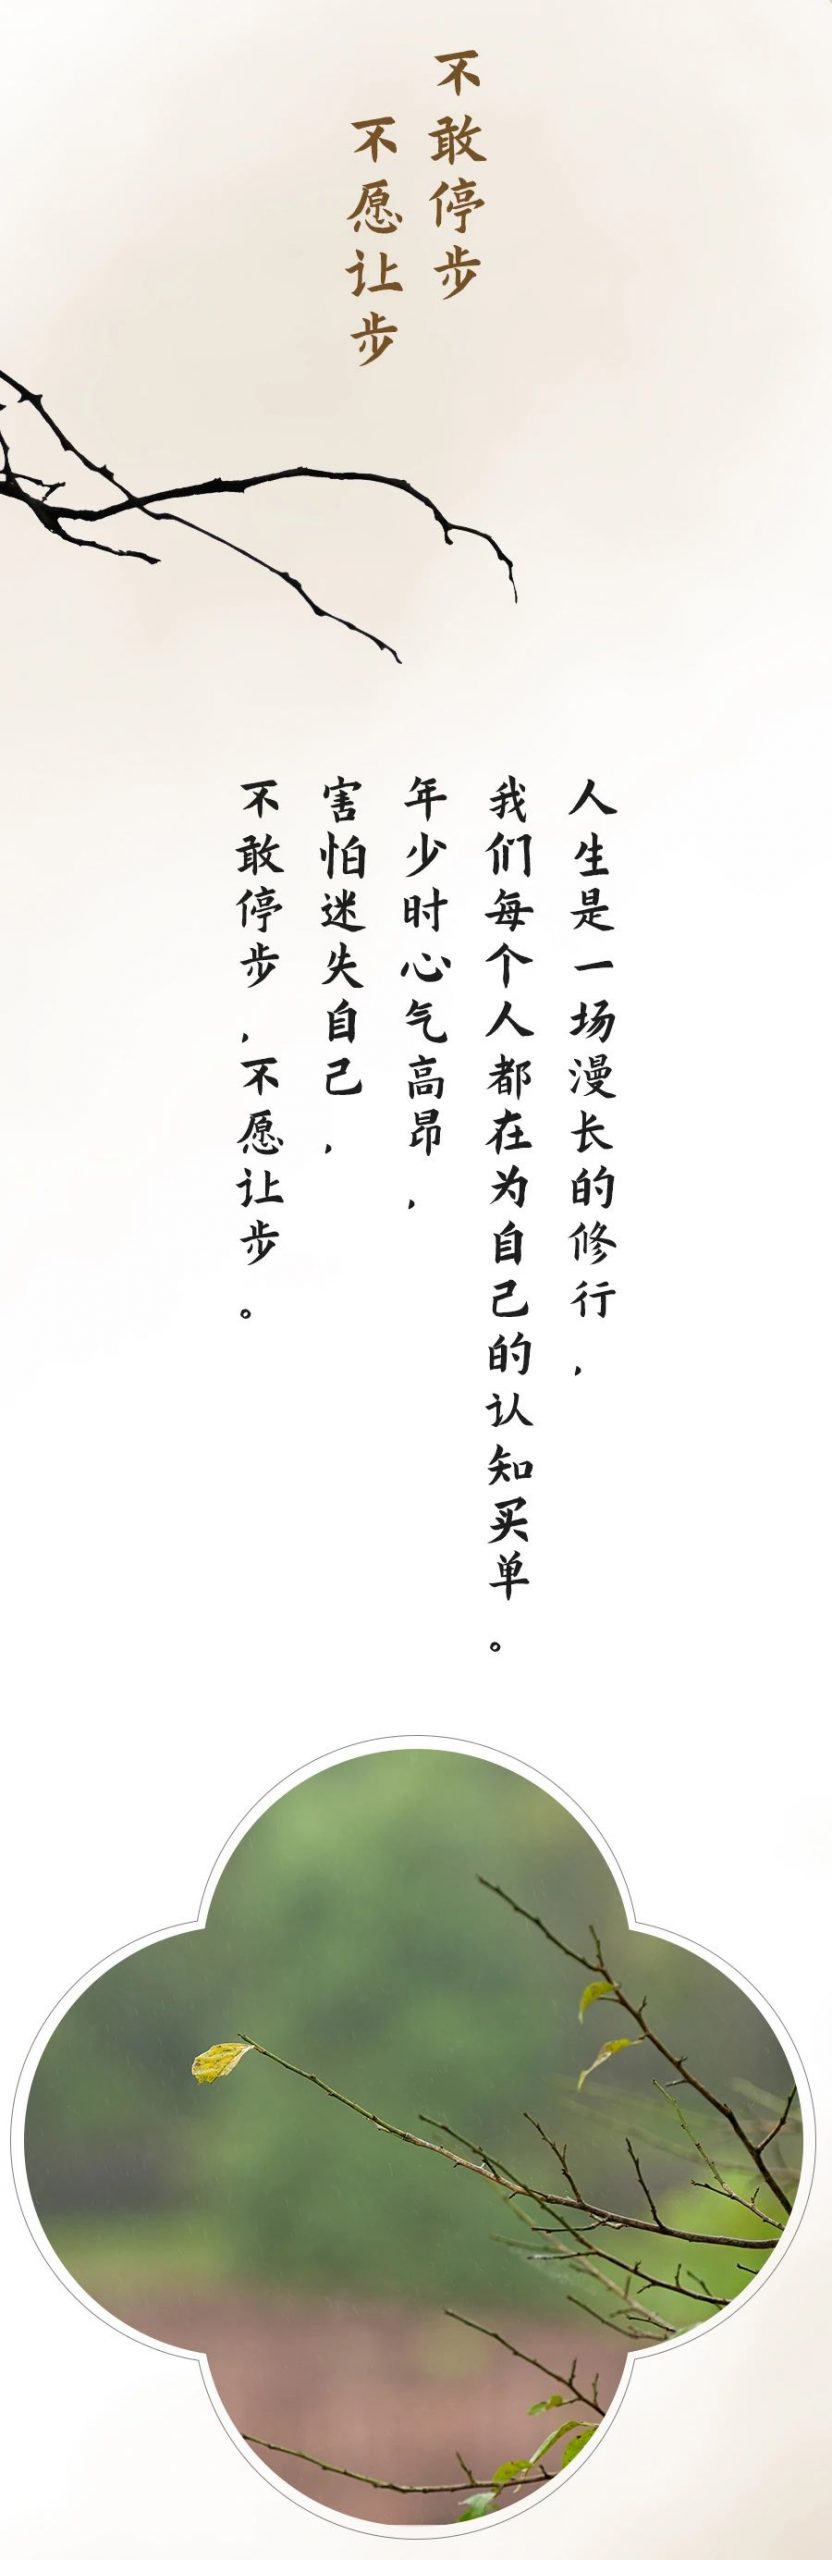 不敢停步
不愿让步
人生是一场漫长的修行，
我们每个人都在为自己的认知买单。
年少时心气高昂，
害怕迷失自己，
不敢停步，不愿让步。